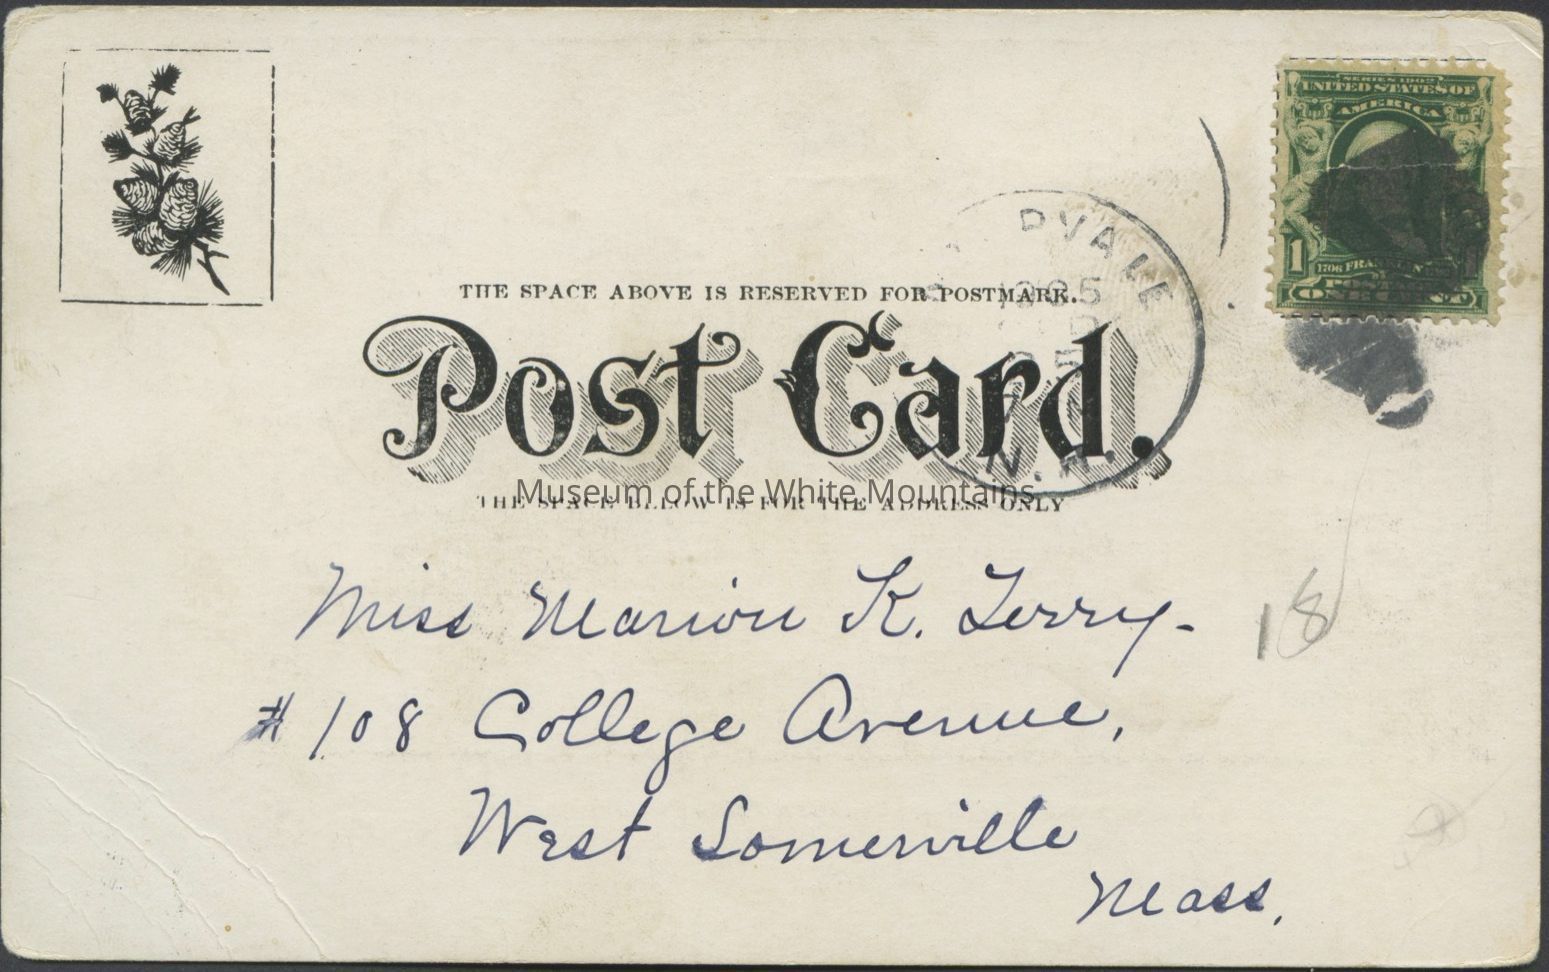 SERIES 1902
UNITED STATES OF
AMERICA
1
ONE CENT
1905
N.H.
THE SPACE ABOVE IS RESERVED FOR POSTMARK.
Post Card.
Museum of the White Mountains
THE SPACE BELOW IS FOR THE ADDRESS ONLY
Miss Marion K. Terry-
18
# 108 College Avenue,
West Somerville
Mass.